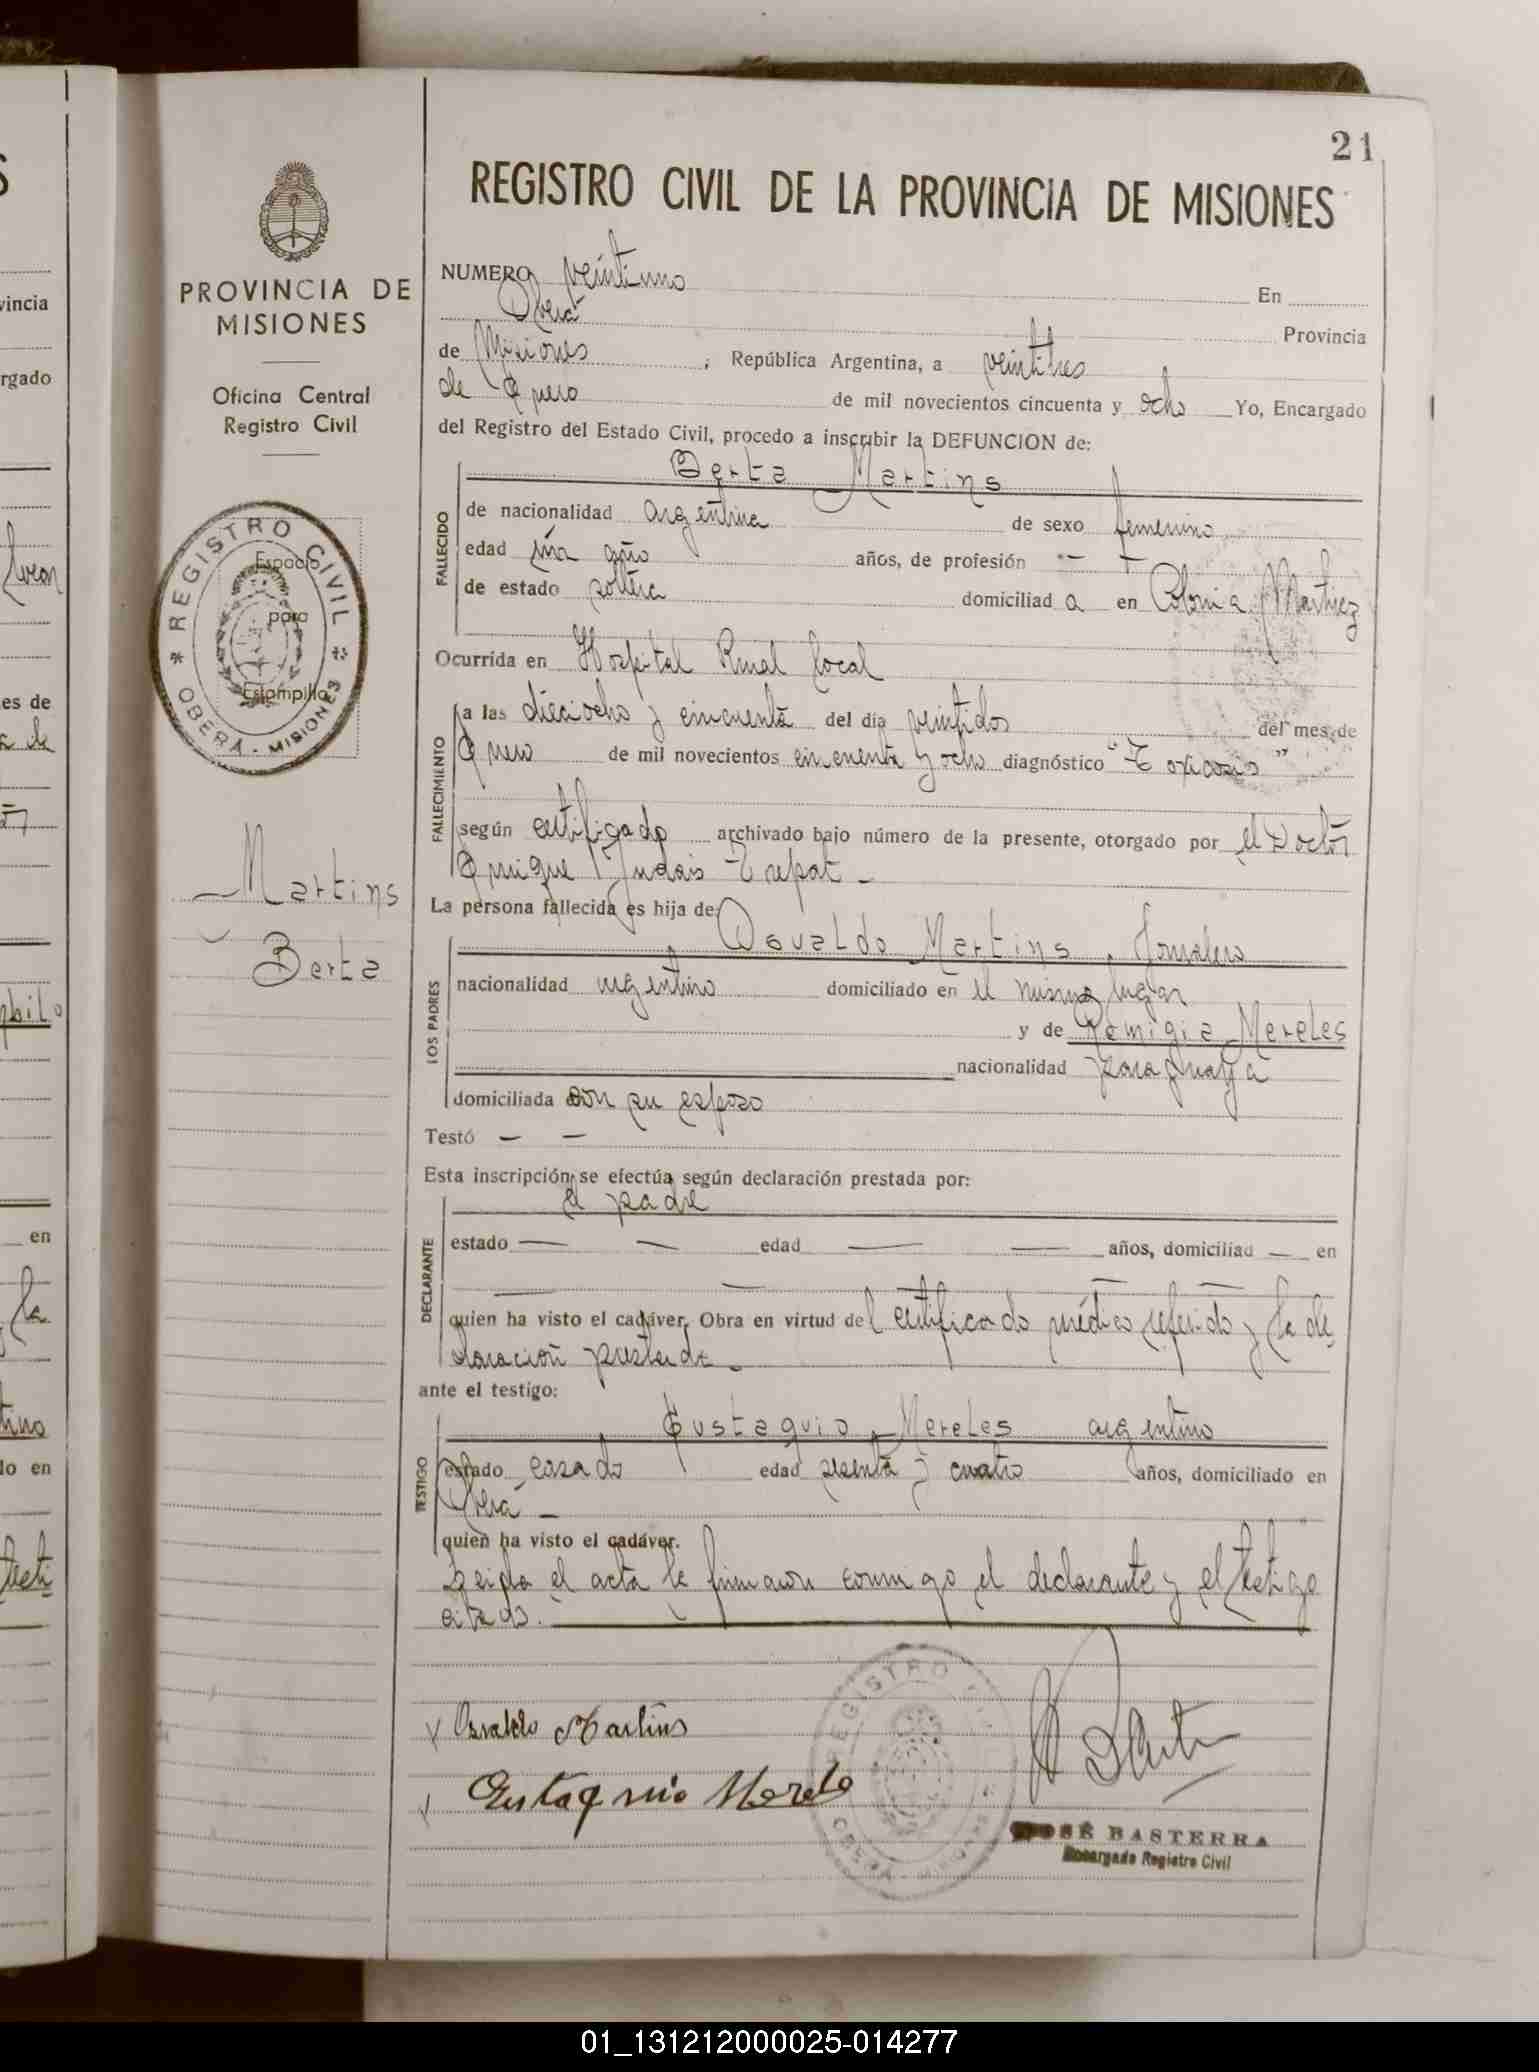 21
REGISTRO CIVIL DE LA PROVINCIA DE MISIONES
PROVINCIA DE
MISIONES
Oficina Central
Registro Civil
REGISTRO CIVIL
OBERÁ - MISIONES
Espacio
para
Estampilla
Martins
Berta
NUMERO veintiuno En
Oberá Provincia
de Misiones, República Argentina, a veintitres
de Enero de mil novecientos cincuenta y ocho Yo, Encargado
del Registro del Estado Civil, procedo a inscribir la DEFUNCION de:
Berta Martins
FALLECIDO
de nacionalidad argentina de sexo femenino
edad un año años, de profesión - -
de estado soltera domiciliad a en Colonia Martirez
Ocurrida en Hospital Rural local
FALLECIMIENTO
a las dieciocho y cincuenta del día veintidos del mes de
Enero de mil novecientos cincuenta y ocho diagnóstico "Toxicosis"
según certificado archivado bajo número de la presente, otorgado por el Doctor
Enrique Trepat -
La persona fallecida es hija de:
LOS PADRES
Osvaldo Martins, Jornalero
nacionalidad argentino domiciliado en el mismo lugar
y de Remigia Mereles
nacionalidad paraguaya
domiciliada con su esposo
Testó — —
Esta inscripción se efectúa según declaración prestada por:
el padre
DECLARANTE
estado — — edad — — años, domiciliad — en
— — — —
quien ha visto el cadáver. Obra en virtud del certificado médico referido y la de
claración prestada -
ante el testigo:
TESTIGO
Eustaquio Mereles argentino
estado casado edad sesenta y cuatro años, domiciliado en
Oberá -
quien ha visto el cadáver.
Leida el acta la firmaron conmigo el declarante y el testigo
citado.
Osvaldo Martins
Eustaquio Merele
REGISTRO CIVIL
OBERÁ - MISIONES
JOSÉ BASTERRA
Encargado Registro Civil
01_131212000025-014277